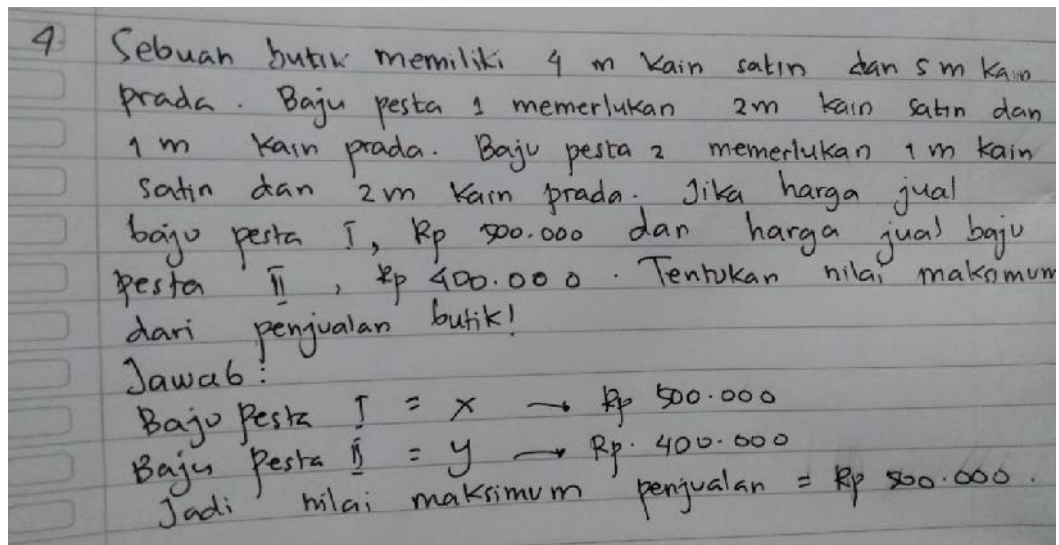 4. Sebuah butik memiliki 4 m kain satin dan 5 m kain
prada. Baju pesta 1 memerlukan 2m kain satin dan
1 m kain prada. Baju pesta 2 memerlukan 1 m kain
satin dan 2 m kain prada. Jika harga jual
baju pesta I, Rp 500.000 dan harga jual baju
pesta II, Rp 400.000. Tentukan nilai maksimum
dari penjualan butik!
Jawab:
Baju Pesta I = x → Rp 500.000
Baju Pesta II = y → Rp. 400.000
Jadi nilai maksimum penjualan = Rp 800.000.